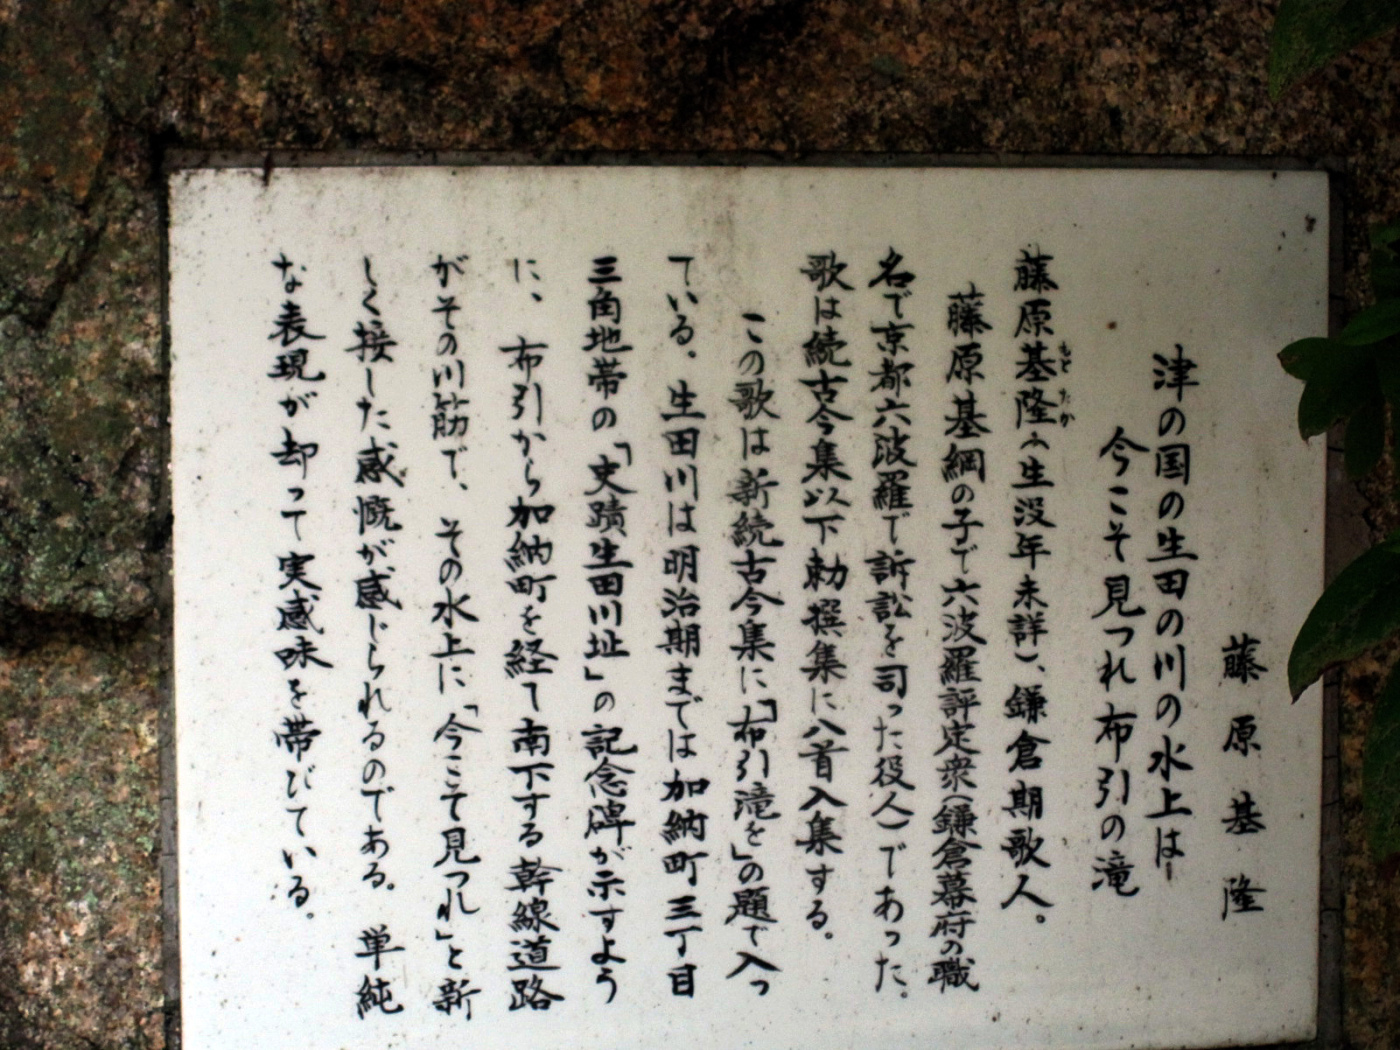 藤原基隆
津の国の生田の川の水上は
今こそ見つれ布引の滝
藤原基隆(生没年未詳)、鎌倉期歌人。
もとたか
藤原基綱の子で六波羅評定衆(鎌倉幕府の職
名で京都六波羅で訴訟を司った役人)であった。
歌は続古今集以下勅撰集に八首入集する。
この歌は新続古今集に「布引滝を」の題で入っ
ている。生田川は明治期までは加納町三丁目
三角地帯の「史蹟生田川址」の記念碑が示すよう
に、布引から加納町を経て南下する幹線道路
がその川筋で、その水上に「今こそ見つれ」と新
しく接した感慨が感じられるのである。単純
な表現が却って実感味を帯びている。